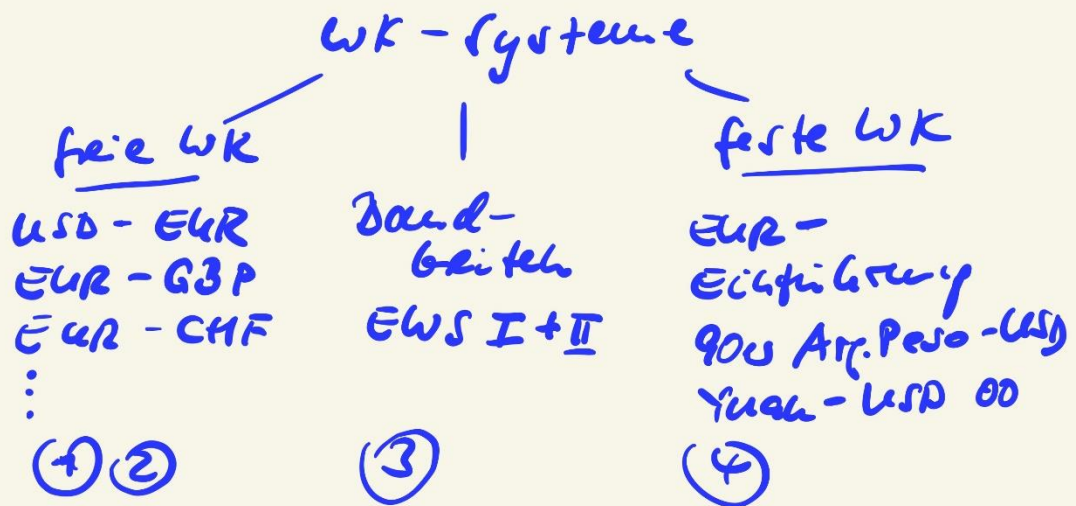 WK-Systeme
freie WK
USD - EUR
EUR - GBP
EUR - CHF
⋮
① ②
Band-
breiten
EWS I + II
③
feste WK
EUR -
Einführung
90er Arg. Peso - USD
Yuan - USD 00
④